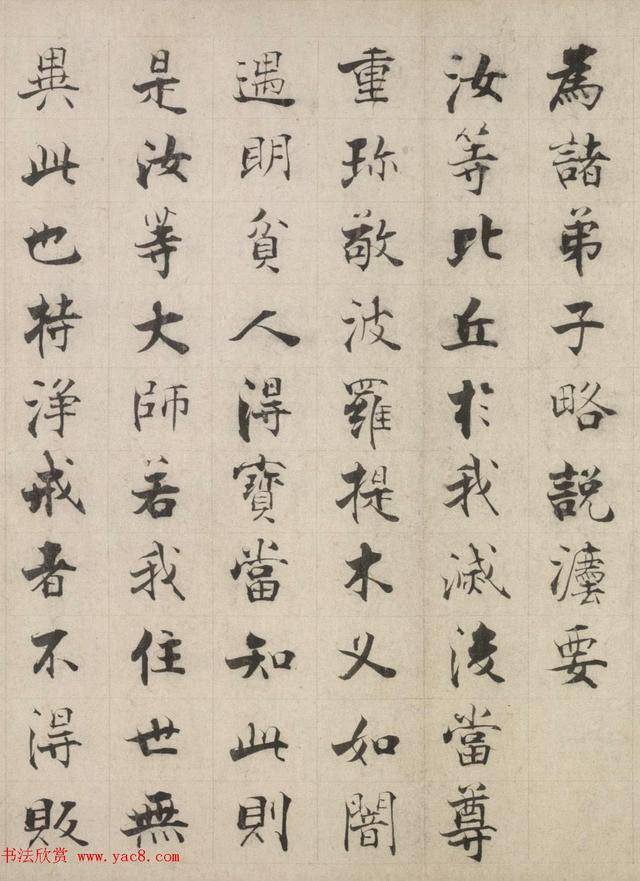 為諸弟子略說灋要
汝等比丘於我滅後當尊
重珎敬波羅提木义如闇
遇明貧人得寶當知此則
是汝等大師若我住世無
異此也持淨戒者不得販
书法欣赏 www.yac8.com